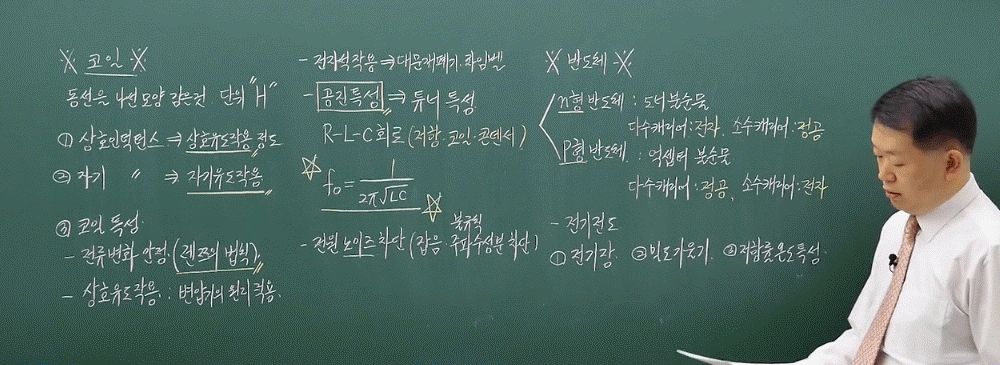 ※ 코일 ※
동선을 나선모양 감은것. 단위 "H"
① 상호인덕턴스 ⇒ 상호유도작용 정도
② 자기 〃 ⇒ 자기유도작용
③ 코일 특성
- 전류변화 안정. (렌쯔의 법칙)
- 상호유도작용 : 변압기의 원리 적용.
- 전자석작용 ⇒ 대문개폐기. 차임벨
- 공진특성 ⇒ 튜너 특성
R-L-C 회로 (저항·코일·콘덴서)
☆ f₀ = 1 / 2π√LC ☆
불규칙
- 전원 노이즈 차단 (잡음 주파수성분 차단)
※ 반도체 ※
n형 반도체 : 도너 불순물
다수캐리어: 전자, 소수캐리어: 정공
P형 반도체 : 억셉터 불순물
다수캐리어: 정공, 소수캐리어: 전자
- 전기전도
① 전기장 ② 밀도기울기. ③ 저항률 온도특성.